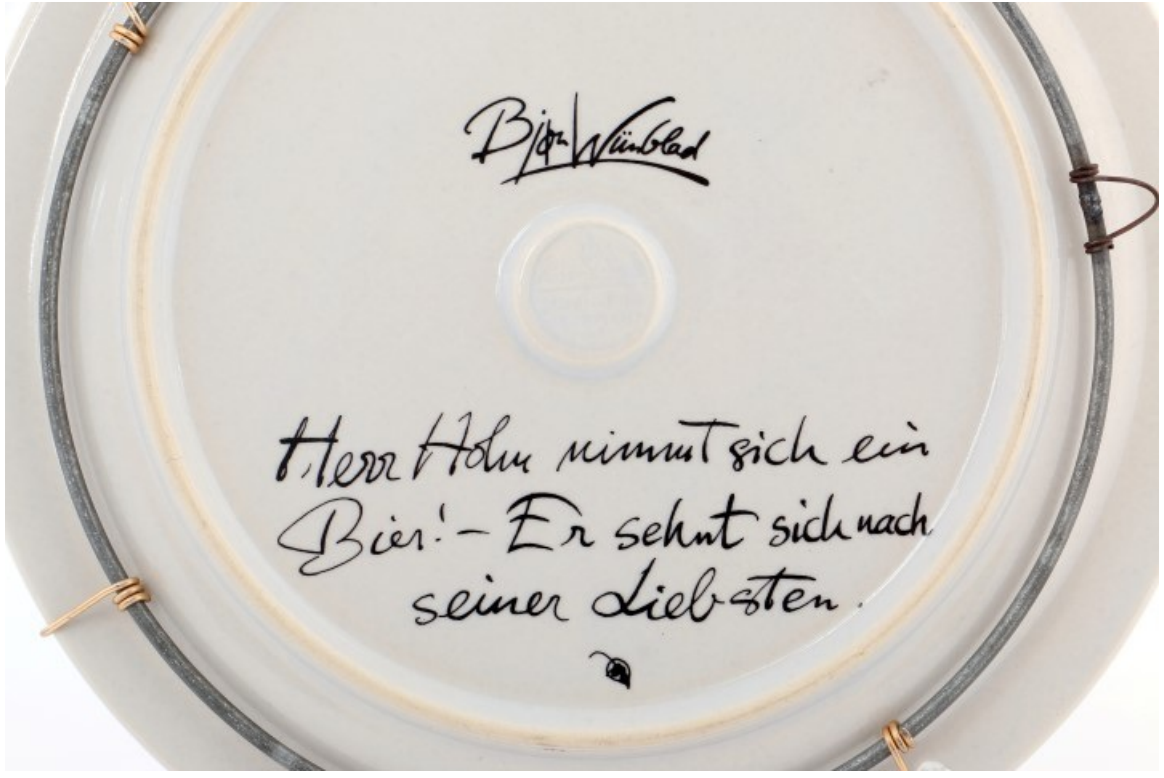 Bjørn Wiinblad
Herr Holm nimmt sich ein
Bier! – Er sehnt sich nach
seiner Liebsten.